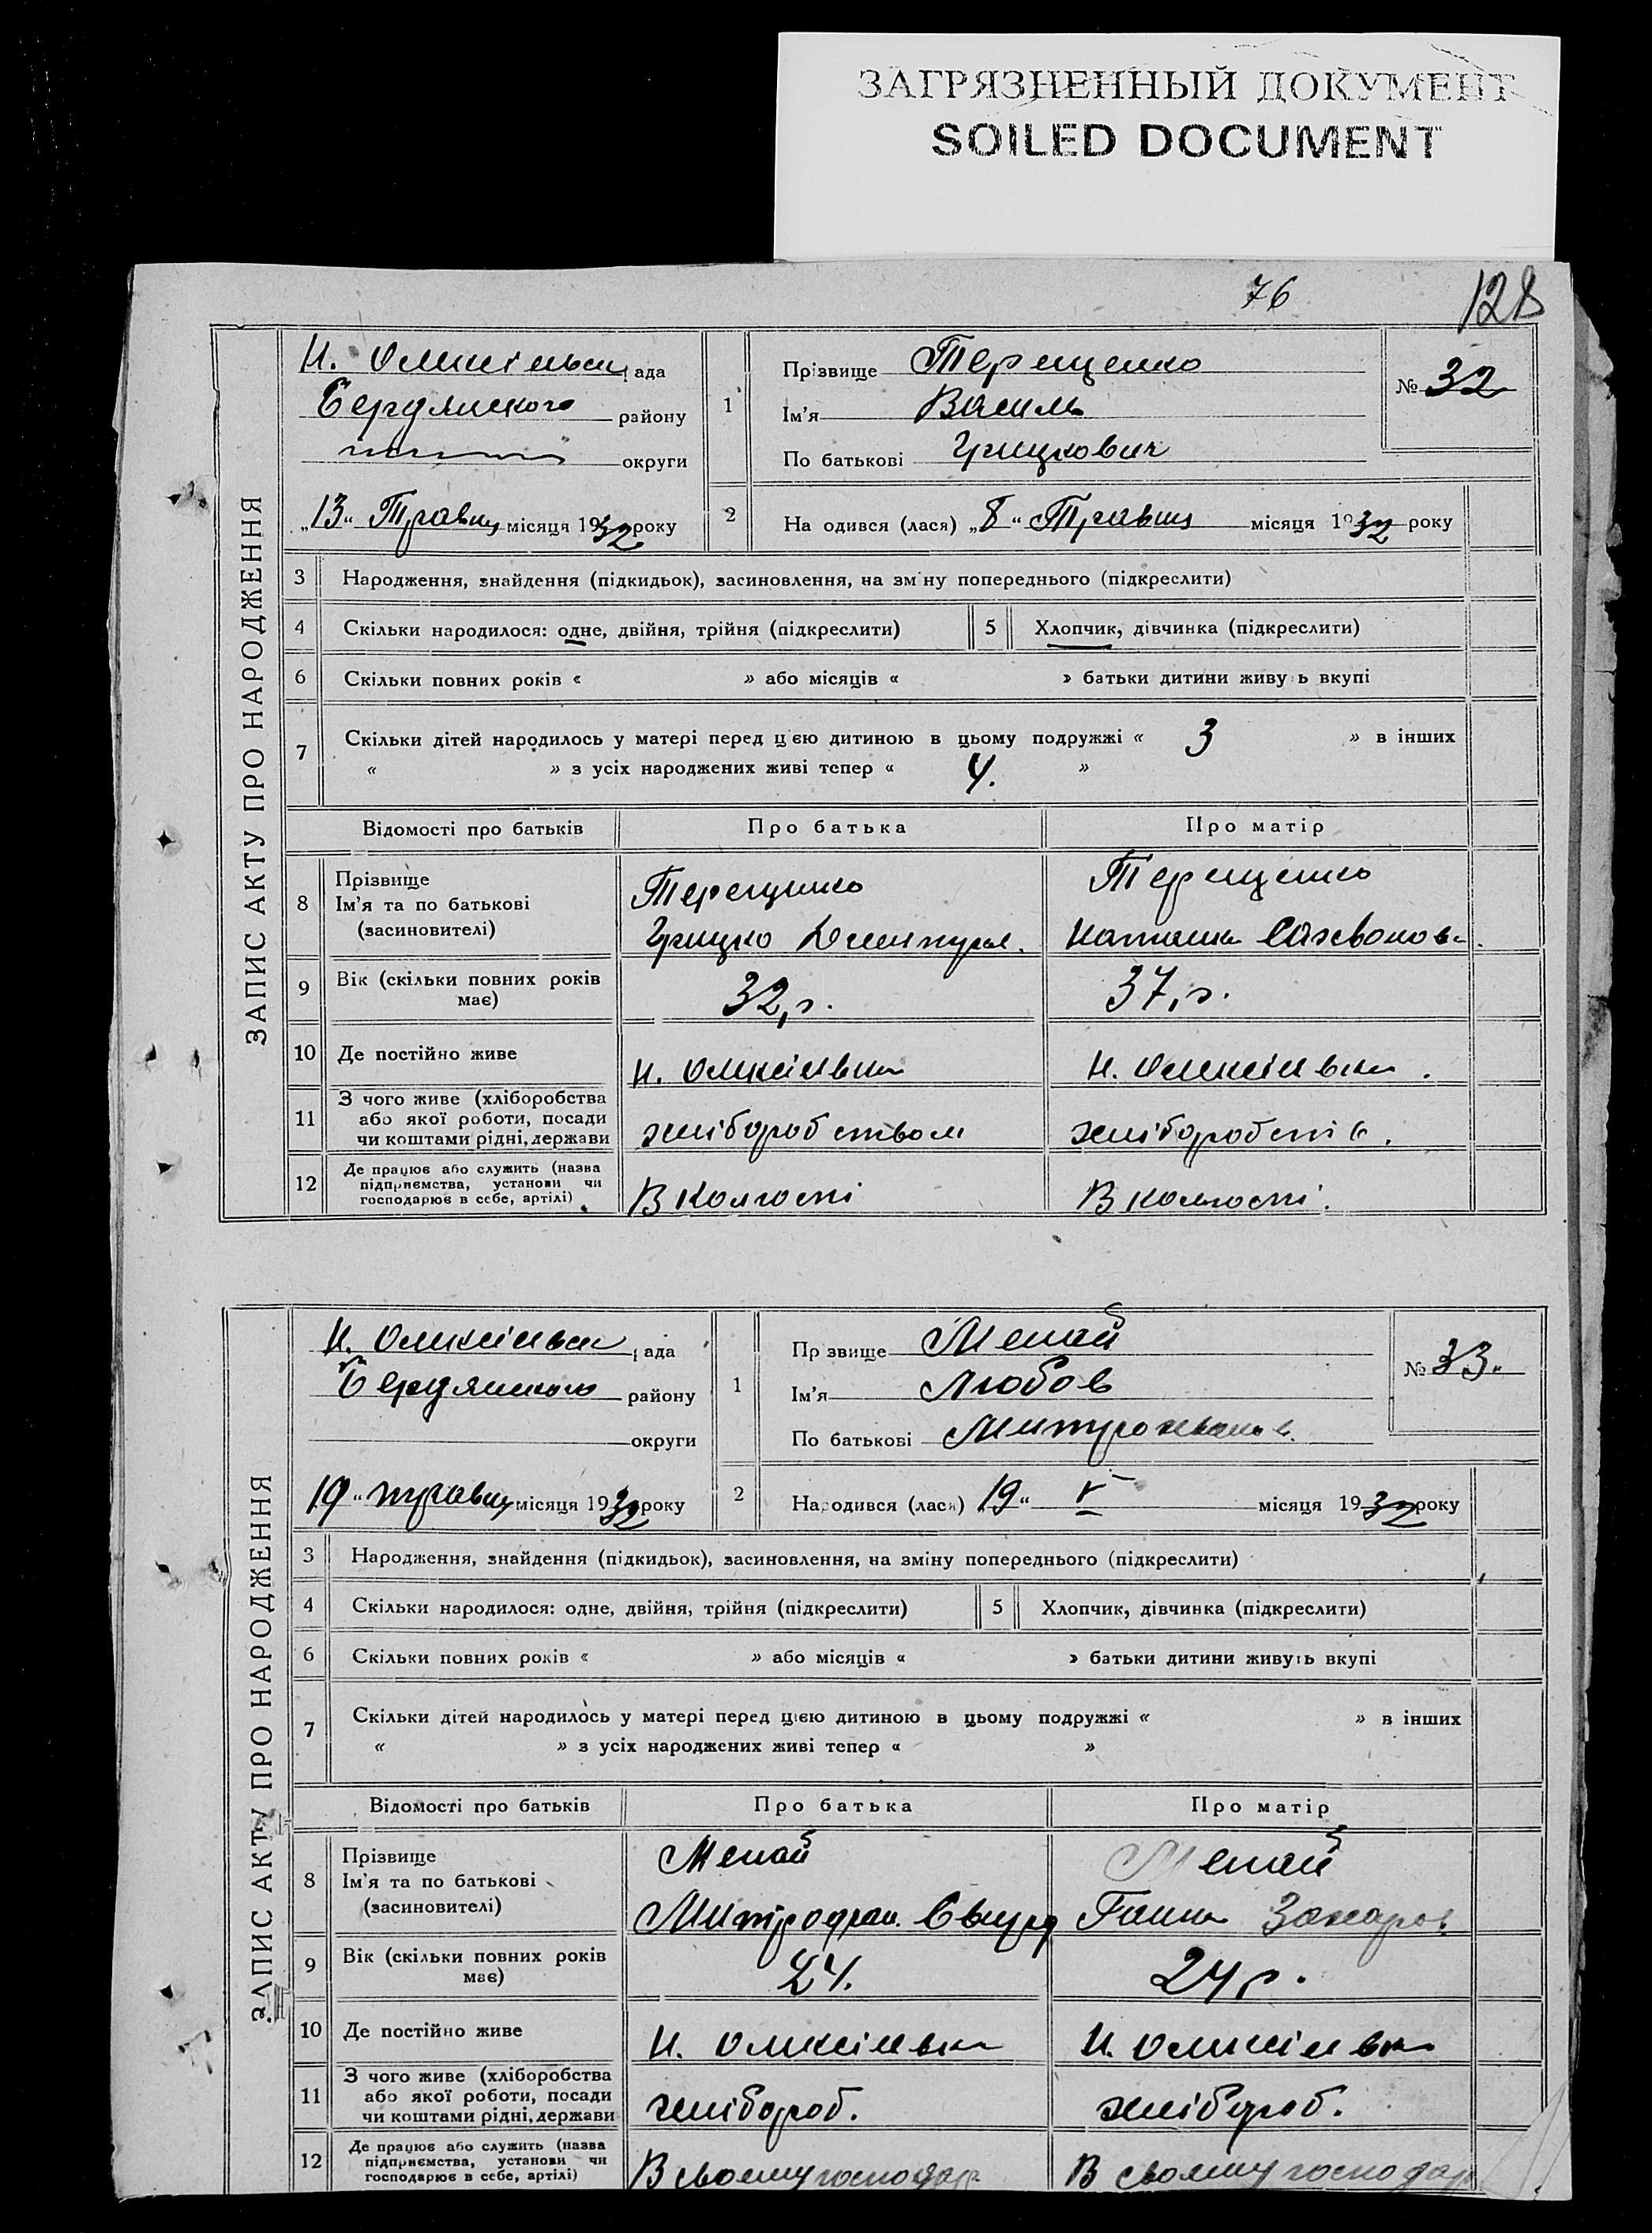 ЗАГРЯЗНЕННЫЙ ДОКУМЕНТ
SOILED DOCUMENT
76
128
ЗАПИС АКТУ ПРО НАРОДЖЕННЯ
Н. Олексіївськ рада
Бердянского району
округи
„13“ Травня місяця 1932 року
1
Прізвище Терещенко
Ім'я Василь
По батькові Грицкович
№ 32
2
На одився (лася) „8“ Травня місяця 1932 року
3 Народження, знайдення (підкидьок), засиновлення, на зм ну попереднього (підкреслити)
4 Скільки народилося: одне, двійня, трійня (підкреслити)
5 Хлопчик, дівчинка (підкреслити)
6 Скільки повних років « » або місяців « » батьки дитини живу ь вкупі
7 Скільки дітей народилось у матері перед цією дитиною в цьому подружжі « 3 » в інших
« » з усіх народжених живі тепер « 4. »
Відомості про батьків Про батька Про матір
8 Прізвище
Ім'я та по батькові
(засиновителі)
Терещенко
Грицко Дмитров.
Терещенко
Наталка
9 Вік (скільки повних років
має)
32, р.
37, р.
10 Де постійно живе
Н. Олексіївка
Н. Олексіївка.
11 З чого живе (хліборобства
або якої роботи, посади
чи коштами рідні, держави
хліборобством
хліборобств.
12 Де працює або служить (назва
підприємства, установи чи
господарює в себе, артілі)
В колгоспі
В колгоспі.
ЗАПИС АКТУ ПРО НАРОДЖЕННЯ
Н. Олексіївськ рада
Бердянского району
округи
19“ травня місяця 1932 року
1
Пр звище Мепай
Ім'я Любов
По батькові
№ 33.
2
Народився (лася) 19“ V місяця 1932 року
3 Народження, знайдення (підкидьок), засиновлення, на зміну попереднього (підкреслити)
4 Скільки народилося: одне, двійня, трійня (підкреслити)
5 Хлопчик, дівчинка (підкреслити)
6 Скільки повних років « » або місяців « » батьки дитини живуть вкупі
7 Скільки дітей народилось у матері перед цією дитиною в цьому подружжі « » в інших
« » з усіх народжених живі тепер « »
Відомості про батьків Про батька Про матір
8 Прізвище
Ім'я та по батькові
(засиновителі)
Мепай
Митрофан.
Мепай
Ганна Захаров.
9 Вік (скільки повних років
має)
24.
24 р.
10 Де постійно живе
Н. Олексіївка
Н. Олексіївка
11 З чого живе (хліборобства
або якої роботи, посади
чи коштами рідні, держави
хлібороб.
хлібороб.
12 Де працює або служить (назва
підприємства, установи чи
господарює в себе, артілі)
В своему господар
В своему господар